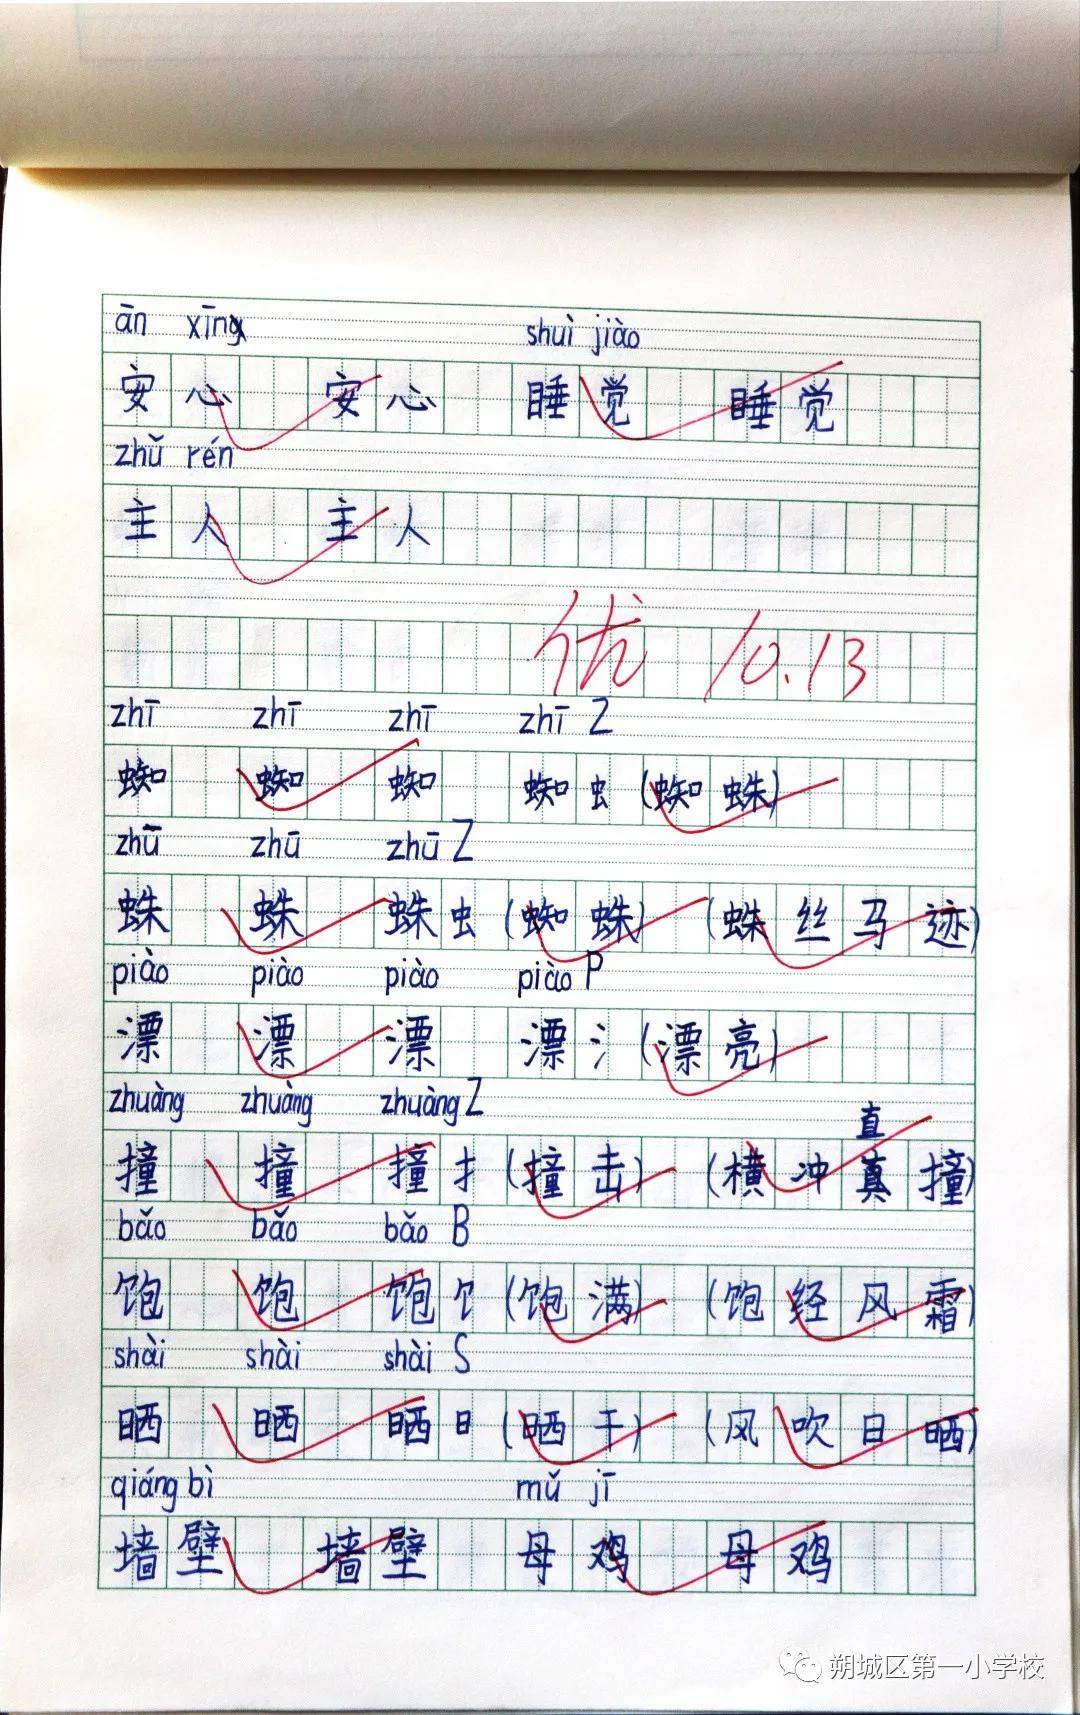 ān xīn shuì jiào
安心 安心 睡觉 睡觉
zhǔ rén
主人 主人
优 10.13
zhī zhī zhī zhī Z
蜘 蜘 蜘 蜘 虫 (蜘蛛)
zhū zhū zhū Z
蛛 蛛 蛛 虫 (蜘蛛) (蛛丝马迹)
piào piào piào piào P
漂 漂 漂 漂 氵 (漂亮)
zhuàng zhuàng zhuàng Z
直
撞 撞 撞 扌 (撞击) (横冲真撞)
bǎo bǎo bǎo B
饱 饱 饱 饣 (饱满) (饱经风霜)
shài shài shài S
晒 晒 晒 日 (晒干) (风吹日晒)
qiáng bì mǔ jī
墙壁 墙壁 母鸡 母鸡
朔城区第一小学校